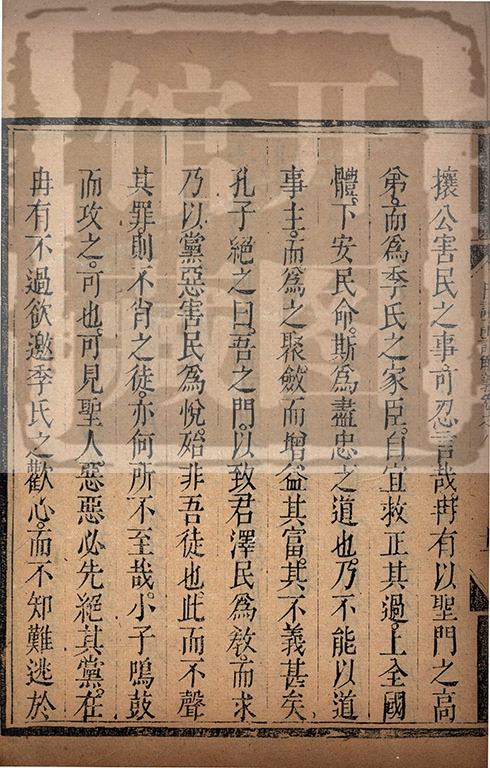 攘公害民之事可忍言哉冉有以聖門之高
弟而為季氏之家臣自宜救正其過上全國
體下安民命斯為盡忠之道也乃不能以道
事主而為之聚斂而增益其富其不義甚矣
孔子絕之曰吾之門以致君澤民為教而求
乃以黨惡害民為悅殆非吾徒也此而不聲
其罪則不肖之徒亦何所不至哉小子鳴鼓
而攻之可也可見聖人惡惡必先絕其黨在
冉有不過欲邀季氏之歡心而不知難逃於